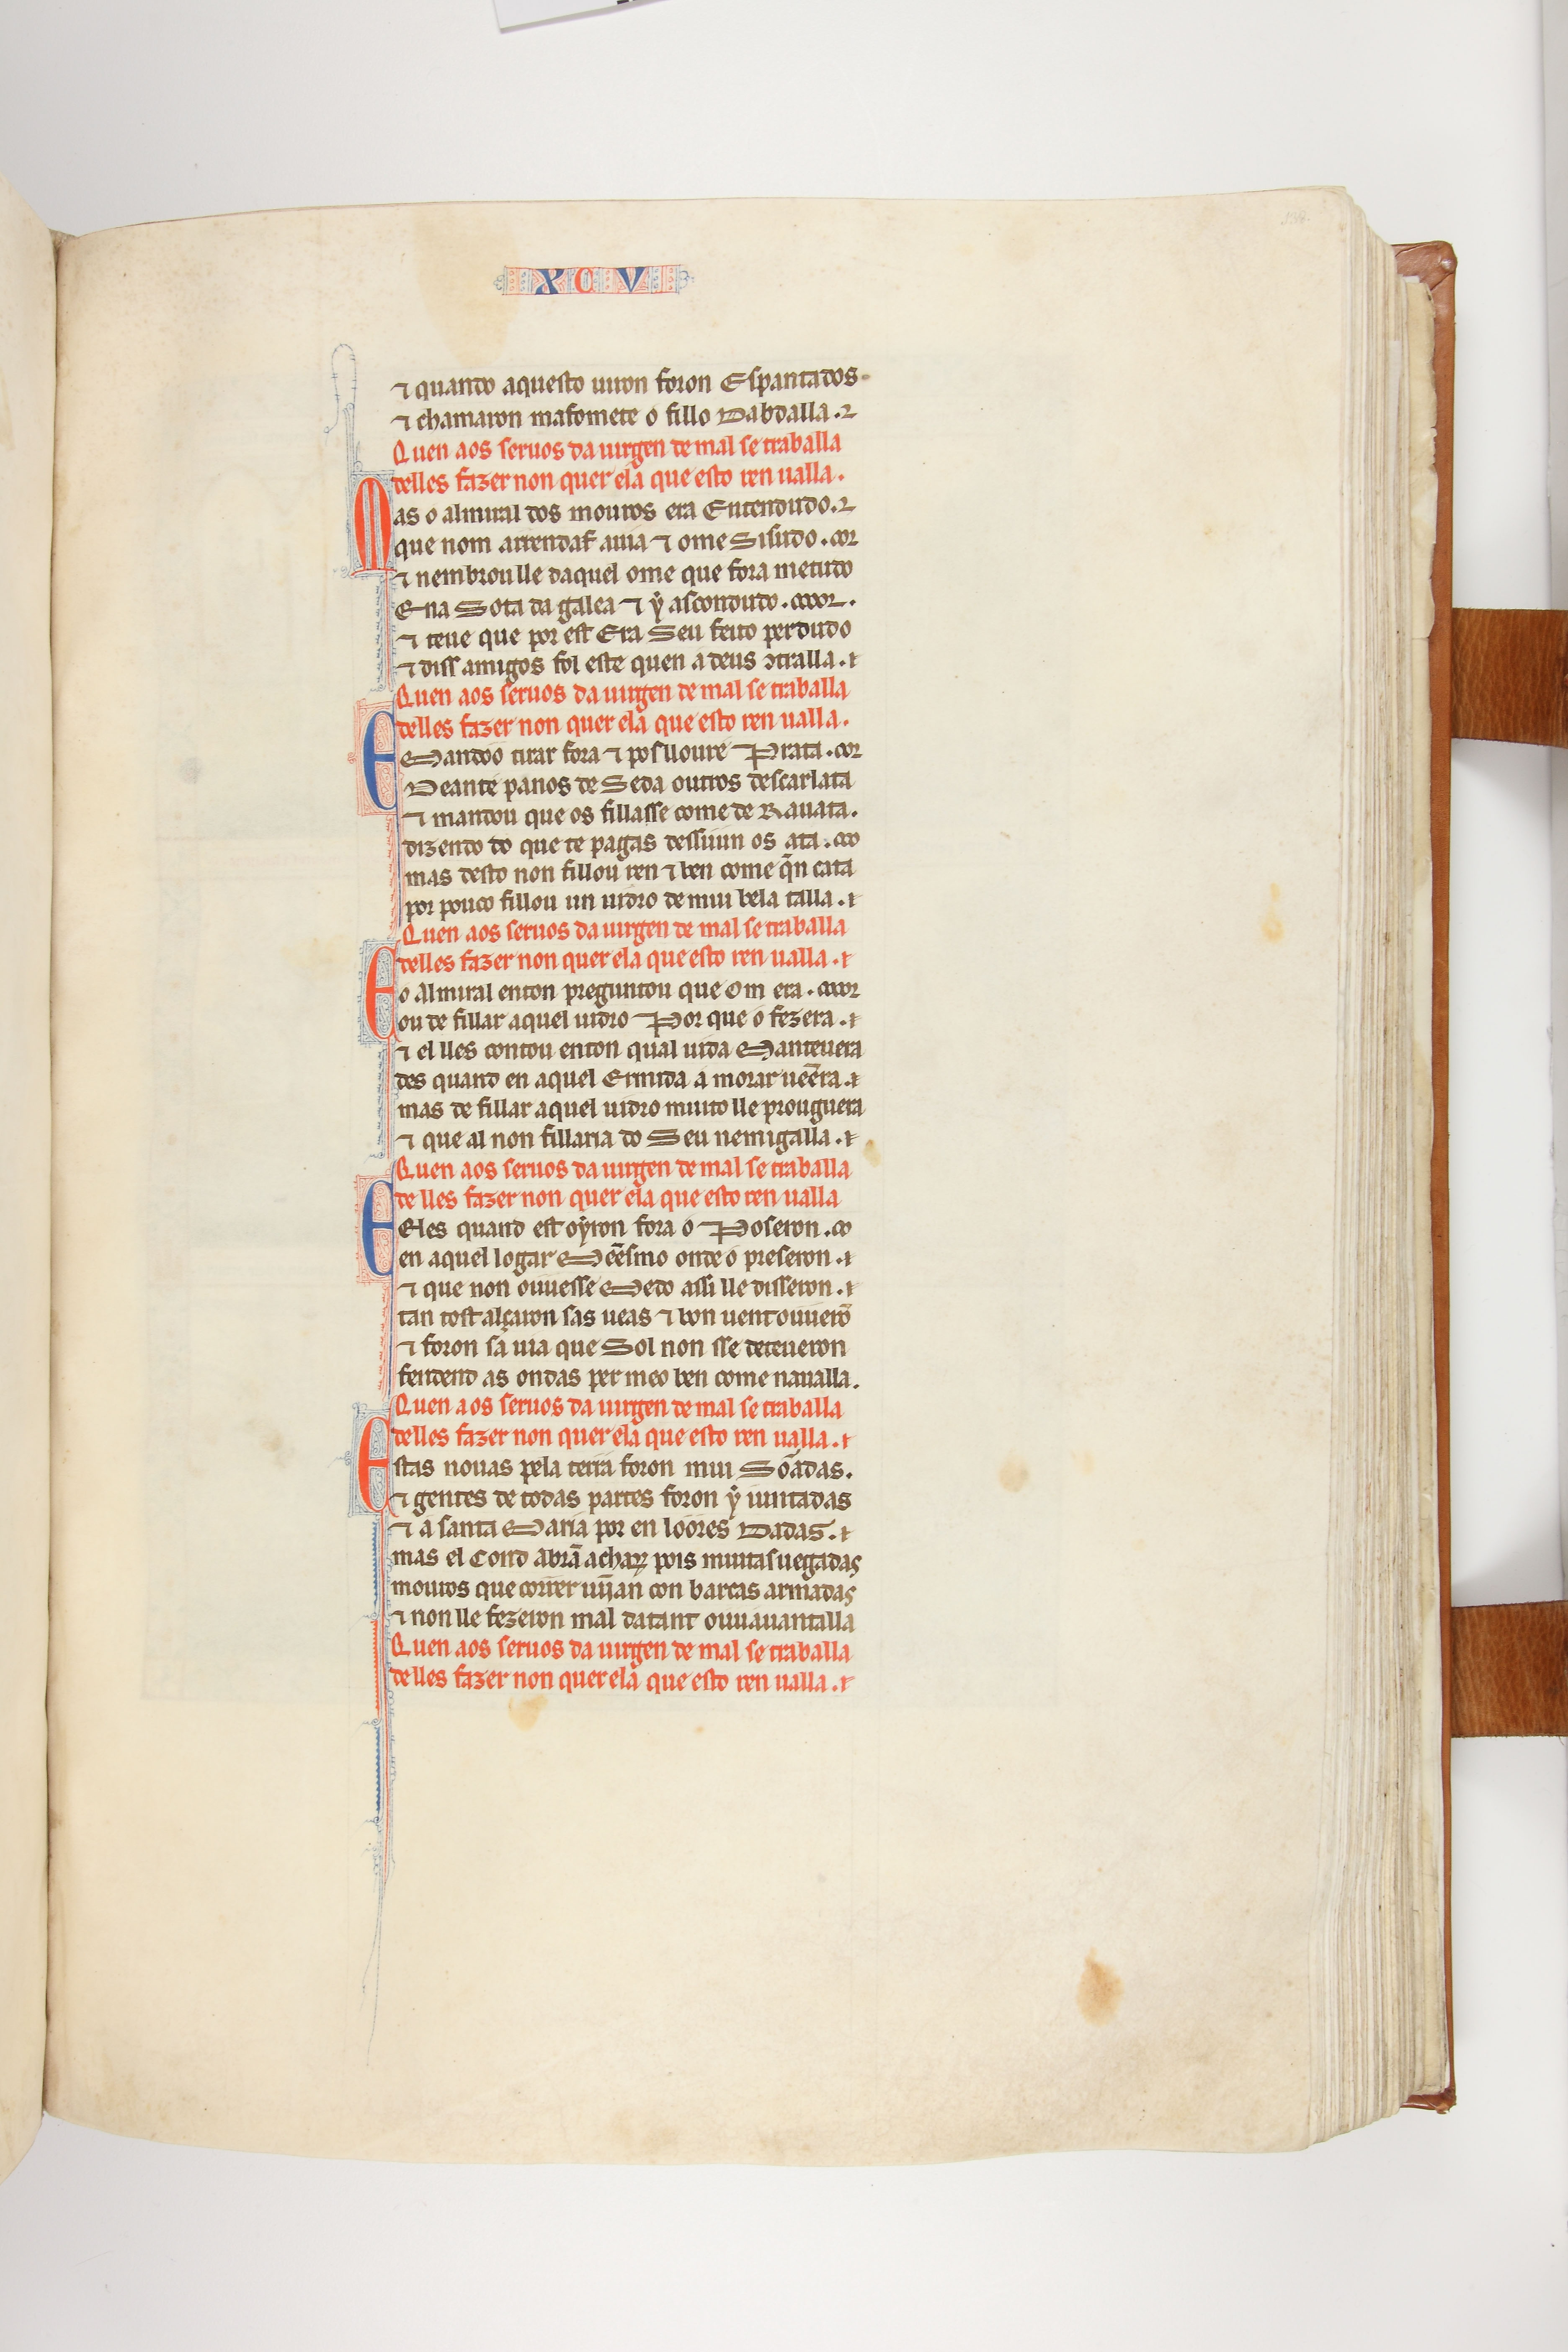 XCV
⁊ quando aquesto uiron foron Espantados.
⁊ chamaron mafomete o fillo Dabdalla.
Quen aos seruos da uirgen de mal se traballa
delles fazer non quer ela que esto ren ualla.
Mas o almiral dos mouros era Entendudo.
que nom atrendaf auia ⁊ ome Sisudo.
⁊ nembroulle daquel ome que fora metudo
Ena Sota da galea ⁊ ẏ ascondudo.
⁊ teue que por est Era Seu feito perdudo
⁊ diss amigos fol este quen a deus ↄtralla.
Quen aos seruos da uirgen de mal se traballa
delles fazer non quer ela que esto ren ualla.
E Mandoo tirar fora ⁊ poslloure Prata.
Deante panos de Seda outros descarlata
⁊ mandou que os fillasse come de Rauata.
dizendo do que te pagas dessuun os ata.
mas desto non fillou ren ⁊ ben come q̄n cata
por pouco fillou un uidro de mui bela talla.
Quen aos seruos da uirgen de mal se traballa
delles fazer non quer ela que esto ren ualla.
Eo Almiral enton preguntou que Om era.
ou de fillar aquel uidro Por que o fezera.
⁊ el lles contou enton qual uida Manteuera
des quand en aquel Ermida a morar ueēra.
mas de fillar aquel uidro muito lle prouguera
⁊ que al non fillaria do Seu nemigalla.
Quen aos seruos da uirgen de mal se traballa
de lles fazer non quer ela que esto ren ualla
E Eles quand est oẏron fora o Poseron.
en aquel logar Meēsmo onde o preseron.
⁊ que non ouuesse Medo assi lle disseron.
tan tost alçaron sas ueas ⁊ bon uent ouuerō
⁊ foron sa uia que Sol non sse deteueron
fendend as ondas per meo ben come naualla.
Quen aos seruos da uirgen de mal se traballa
delles fazer non quer ela que esto ren ualla.
Estas nouas pela terra foron mui Sōadas.
⁊ gentes de todas partes foron ẏ iuntadas
⁊ a santa Maria por en loores Dadas.
mas el Cond Abrā achar pois muitas uegadas
mouros que correr uij̄an con barcas armadas
⁊ non lle fezeron mal datant ouu auantalla
Quen aos seruos da uirgen de mal se traballa
de lles fazer non quer ela que esto ren ualla.